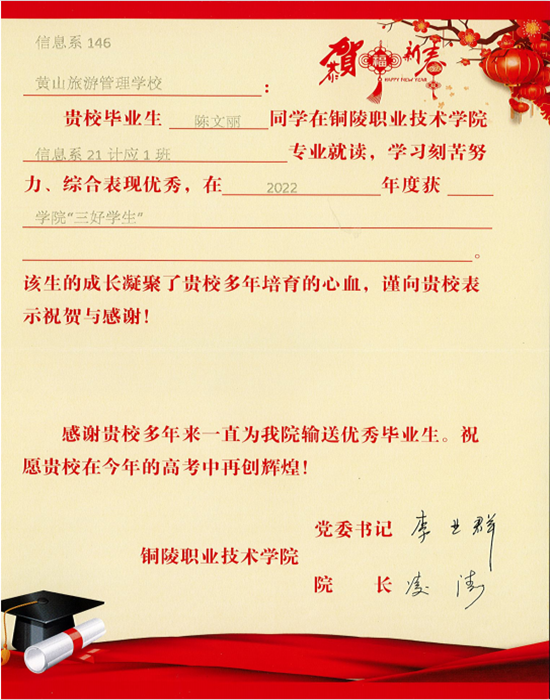 信息系 146
恭贺新春
福
HAPPY NEW YEAR
黄山旅游管理学校：
贵校毕业生 陈文丽 同学在铜陵职业技术学院
信息系 21 计应 1 班 专业就读，学习刻苦努
力、综合表现优秀，在 2022 年度获
学院“三好学生”
。
该生的成长凝聚了贵校多年培育的心血，谨向贵校表
示祝贺与感谢！
感谢贵校多年来一直为我院输送优秀毕业生。祝
愿贵校在今年的高考中再创辉煌！
党委书记 李业群
铜陵职业技术学院
院 长 凌涛